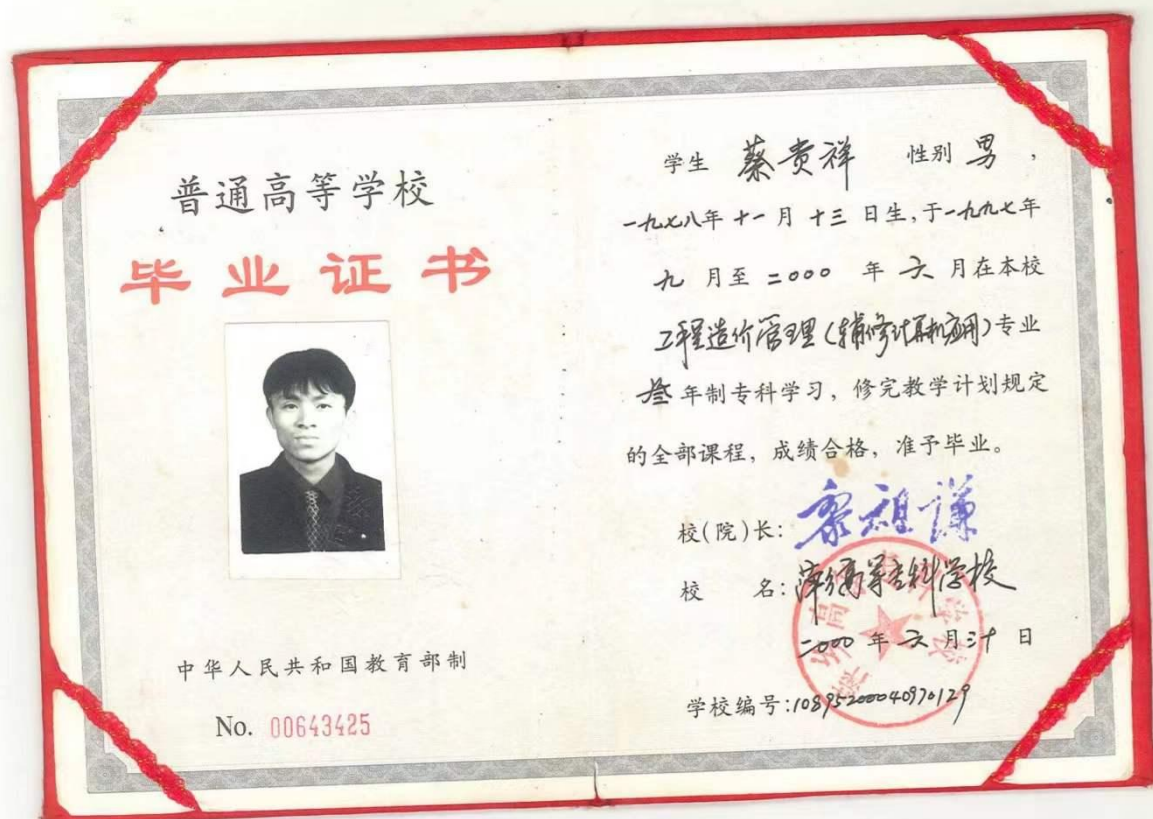 普通高等学校
毕业证书
中华人民共和国教育部制
No. 00643425
学生 蔡贵祥 性别 男，
一九七八年十一月十三日生，于一九九七年
九月至二000年六月在本校
工程造价管理（辅修计算机应用）专业
叁年制专科学习，修完教学计划规定
的全部课程，成绩合格，准予毕业。
校(院)长：黎祖谦
校 名：萍乡高等专科学校
二000年六月三十日
学校编号：108952000040970129